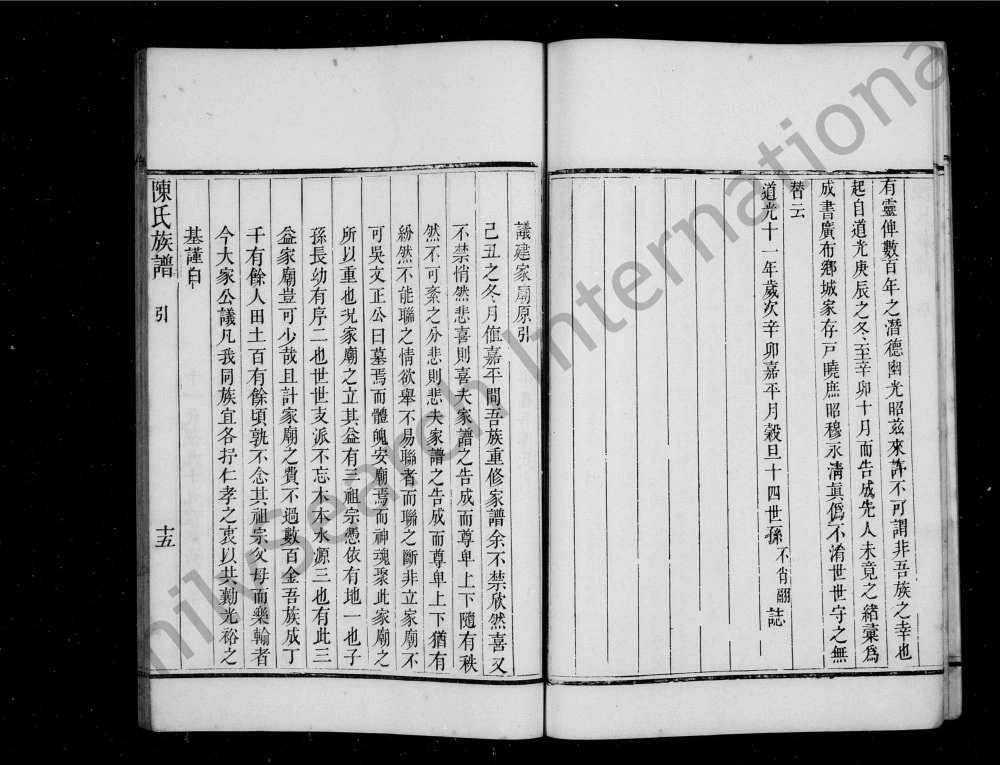 有靈俾數百年之潛德幽光昭茲來許不可謂非吾族之幸也
起自道光庚辰之冬至辛卯十月而告成先人未竟之緒彙爲
成書廣布鄉城家存戸曉庶昭穆永清眞僞不淆世世守之無
替云
道光十一年歲次辛卯嘉平月穀旦十四世孫不肖翮誌
議建家廟原引
己丑之冬月值嘉平間吾族重修家譜余不禁欣然喜又
不禁悄然悲喜則喜夫家譜之告成而尊卑上下隨有秩
然不可紊之分悲則悲夫家譜之告成而尊卑上下猶有
紛然不能聯之情欲舉不易聯者而聯之斷非立家廟不
可吳文正公曰墓焉而體魄安廟焉而神魂聚此家廟之
所以重也况家廟之立其益有三祖宗憑依有地一也子
孫長幼有序二也世世支派不忘木本水源三也有此三
益家廟豈可少哉且計家廟之費不過數百金吾族成丁
千有餘人田土百有餘頃孰不念其祖宗父母而樂輸者
今大家公議凡我同族宜各抒仁孝之衷以共勷光裕之
基謹白
陳氏族譜 引 十五
FamilySearch International